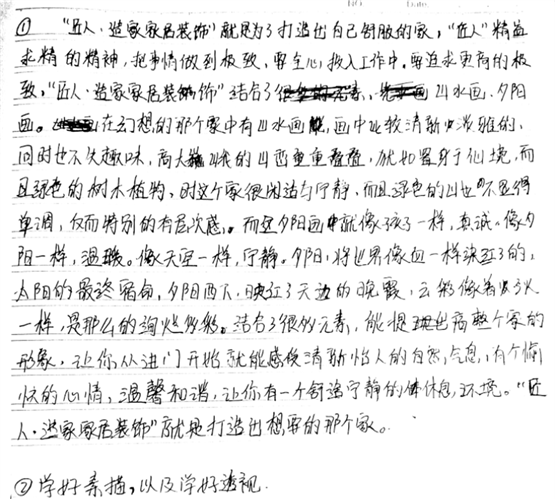 ① “匠人·造家家居装饰”就是为了打造出自己舒服的家，“匠人”精益
求精的精神，把事情做到极致，要全心投入工作中，要追求更高的极
致，“匠人·造家家居装饰”结合了山水画、夕阳
画。在幻想的那个家中有山水画，画中比较清新淡雅的，
同时也不失趣味，高大巍峨的山峦重重叠叠，犹如置身于仙境，而
且绿色的树木植物，对这个家很闲洁与宁静，而且绿色的山也不显得
单调，反而特别的有层次感。而至夕阳画中就像孩子一样，真诚。像夕
阳一样，温暖。像天空一样，宁静。夕阳，将世界像血一样染红了的，
太阳的最终宿命，夕阳西下，映红了天边的晚霞，云彩像着火
一样，是那么的绚烂多彩。结合了很多元素，能提高整个家的
形象，让你从进门开始就能感受清新怡人的自然气息，有个愉
快的心情，温馨和谐，让你有一个舒适宁静的休息环境。“匠
人·造家家居装饰”就是打造出想要的那个家。
② 学好素描，以及学好透视.